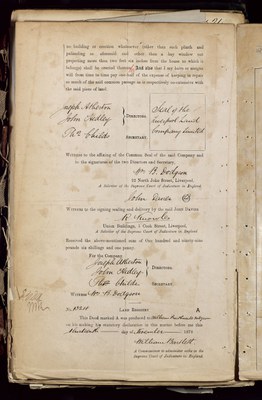 no building or erection whatsoever (other than such plinth and
palisading as aforesaid and other than a bay window not
projecting more than two feet six inches from the house to which it
belongs) shall be erected thereon And also that I my heirs or assigns
will from time to time pay one half of the expense of keeping in repair
so much of the said common passage as is respectively co-extensive with
the said piece of land
Joseph Atherton
John Hedley
DIRECTORS.
Thos Childs
SECRETARY.
Seal of the
Liverpool Land
Company Limited
Witness to the affixing of the Common Seal of the said Company and
to the signatures of the two Directors and Secretary,
Wm H. Dodgson
22 North John Street, Liverpool,
A Solicitor of the Supreme Court of Judicature in England
John Davies
Witness to the signing sealing and delivery by the said John Davies
R. Knowles
Union Buildings, 7 Cook Street, Liverpool,
A Solicitor of the Supreme Court of Judicature in England.
Received the above-mentioned sum of one hundred and ninety-nine
pounds six shillings and one penny
For the Company
Joseph Atherton
John Hedley
DIRECTORS.
Thos Childs
SECRETARY.
WITNESS Wm H. Dodgson
No.
LAND REGISTRY
A
This Deed marked A was produced to
on his making his statutory declaration in this matter before me this
day of November 187
William Bartlett
A Commissioner to administer oaths in the
Supreme Court of Judicature in England